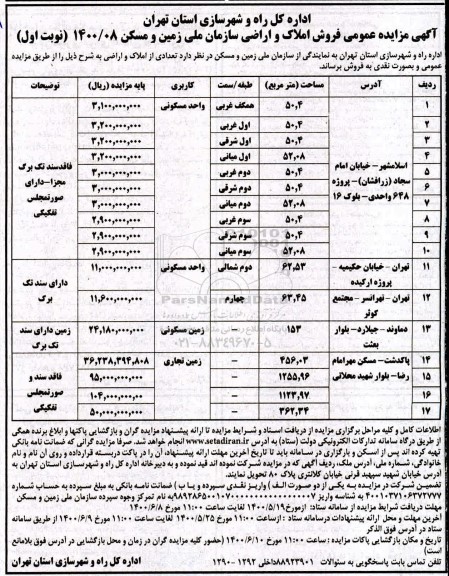 اداره کل راه و شهرسازی استان تهران
آگهی مزایده عمومی فروش املاک و اراضی سازمان ملی زمین و مسکن ۱۴۰۰/۰۸ (نوبت اول)
اداره راه و شهرسازی استان تهران به نمایندگی از سازمان ملی زمین و مسکن در نظر دارد تعدادی از املاک و اراضی به شرح ذیل را از طریق مزایده
عمومی و بصورت نقدی به فروش برساند.
ردیف آدرس مساحت (متر مربع) طبقه/سمت کاربری پایه مزایده (ریال) توضیحات
۱ ۵۰,۴ همکف غربی واحد مسکونی ۳,۱۰۰,۰۰۰,۰۰۰
۲ ۵۰,۴ اول غربی ۳,۲۰۰,۰۰۰,۰۰۰
۳ ۵۰,۴ اول شرقی ۳,۲۰۰,۰۰۰,۰۰۰
۴ اسلامشهر- خیابان امام ۵۲,۰۸ اول میانی ۳,۲۰۰,۰۰۰,۰۰۰ فاقدسند تک برگ
۵ سجاد (زرافشان)- پروژه ۵۰,۴ دوم غربی ۳,۰۰۰,۰۰۰,۰۰۰ مجزا-دارای
۶ ۶۴۸ واحدی- بلوک ۱۶ ۵۰,۴ دوم شرقی ۳,۰۰۰,۰۰۰,۰۰۰ صورتمجلس
۷ ۵۲,۰۸ دوم میانی ۳,۰۰۰,۰۰۰,۰۰۰ تفکیکی
۸ ۵۰,۴ سوم غربی ۲,۹۰۰,۰۰۰,۰۰۰
۹ ۵۰,۴ سوم شرقی ۲,۹۰۰,۰۰۰,۰۰۰
۱۰ ۵۲,۰۸ سوم میانی ۲,۹۰۰,۰۰۰,۰۰۰
۱۱ تهران - خیابان حکیمیه - پروژه ارکیده ۶۲,۵۳ دوم شمالی واحد مسکونی ۱۱,۰۰۰,۰۰۰,۰۰۰ دارای سند تک
۱۲ تهران - تهرانسر - مجتمع کوثر ۶۳,۴۵ چهارم ۱۱,۶۰۰,۰۰۰,۰۰۰ برگ
۱۳ دماوند - جیلارد- بلوار بعثت ۱۵۳ - زمین مسکونی ۲۴,۱۸۰,۰۰۰,۰۰۰ زمین دارای سند تک برگ
۱۴ پاکدشت- مسکن مهرامام ۴۵۶,۰۳ - زمین تجاری ۳۶,۲۳۸,۳۹۴,۸۰۸
۱۵ رضا- بلوار شهید محلاتی ۱۲۵۵,۹۶ - ۹۵,۰۰۰,۰۰۰,۰۰۰ فاقد سند و
۱۶ ۱۱۲۳,۹۷ - ۱۰۴,۰۰۰,۰۰۰,۰۰۰ صورتمجلس
۱۷ ۳۶۲,۳۴ - ۵۰,۰۰۰,۰۰۰,۰۰۰ تفکیکی
ParsNamadData
۰۲۱-۸۸۳۴۹۶۷۰-۵
اطلاعات کامل و کلیه مراحل برگزاری مزایده از دریافت اسناد و شرایط مزایده تا ارائه پیشنهاد مزایده گران و بازگشایی پاکتها و ابلاغ برنده همگی
از طریق درگاه سامانه تدارکات الکترونیکی دولت (ستاد) به آدرس www.setadiran.ir انجام خواهد شد. صرفا مزایده گرانی که ضمانت نامه بانکی
تهیه کرده اند پس از اسکن و بارگزاری در سامانه باید تا تاریخ آخرین مهلت ارائه پیشنهاد، آن را در پاکت دربسته قرارداده و روی آن نام و نام
خانوادگی، شماره ملی، آدرس ملک، ردیف آگهی که در مزایده شرکت نموده اند قید نموده و به دبیرخانه اداره کل راه و شهرسازی استان تهران به
آدرس خیابان شهید سپهبد قرنی خیابان کلانتری پلاک ۸۰ تحویل نمایند.
تضمین شرکت در مزایده به یکی از دو صورت الف) واریز نقدی سپرده و یا ب) ضمانت نامه بانکی به مبلغ سپرده به حساب شماره
به نام تمرکز وجوه سپرده سازمان ملی زمین و مسکن
مهلت دریافت شرایط مزایده از سامانه ستاد: ازمورخ ۱۴۰۰/۵/۱۹ لغایت ساعت ۱۱:۰۰ مورخ ۱۴۰۰/۶/۸
آخرین مهلت و محل ارائه پیشنهادات درسامانه ستاد : ازساعت ۱۱:۰۰ مورخ ۱۴۰۰/۵/۲۵ لغایت ساعت ۱۱:۰۰ مورخ ۱۴۰۰/۶/۹ از طریق سامانه
ستاد در آدرس فوق الذکر
تاریخ و مکان بازگشایی پاکات مزایده : ساعت ۱۱:۰۰ مورخ ۱۴۰۰/۶/۱۰ (حضور کلیه مزایده گران در زمان و محل بازگشایی در آدرس فوق بلامانع
است)
تلفن تماس بابت پاسخگویی به سئوالات ۸۸۹۲۳۹۰۱داخلی ۱۲۹۲-۱۲۹۰ اداره کل راه و شهرسازی استان تهران